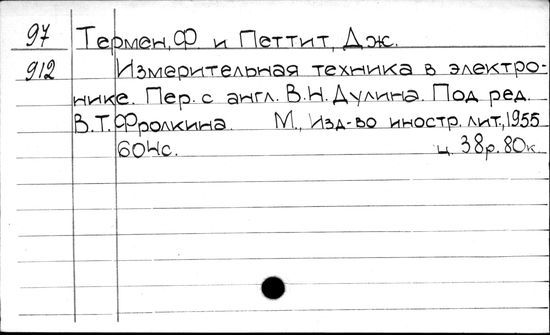 97 Термен, Ф. и Петтит, Дж.
912 Измерительная техника в электро-
нике. Пер. с англ. В.Н. Дулина. Под ред.
В.Т. Фролкина. М., Изд-во иностр. лит., 1955
604с. ц. 38р. 80к.